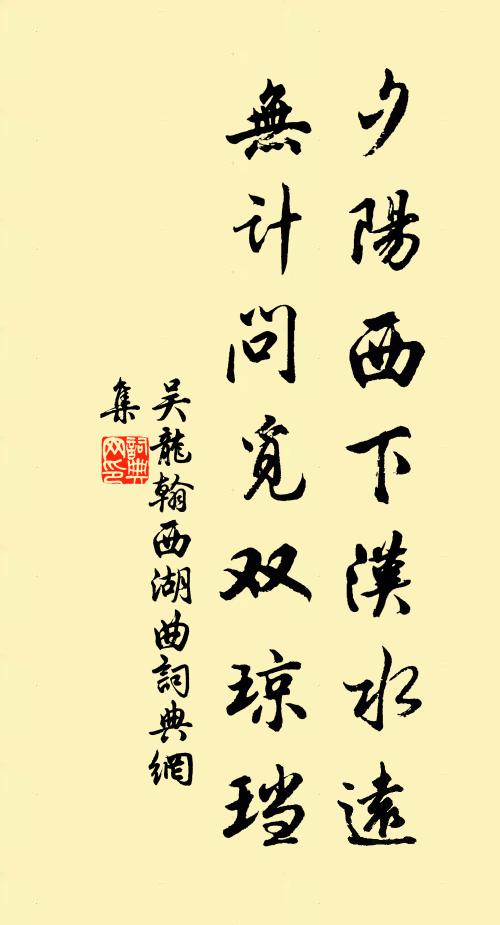 夕陽西下漢水遠
無計問覓双琼珰
吴龍翰西湖曲詞典網
集
詞典网印